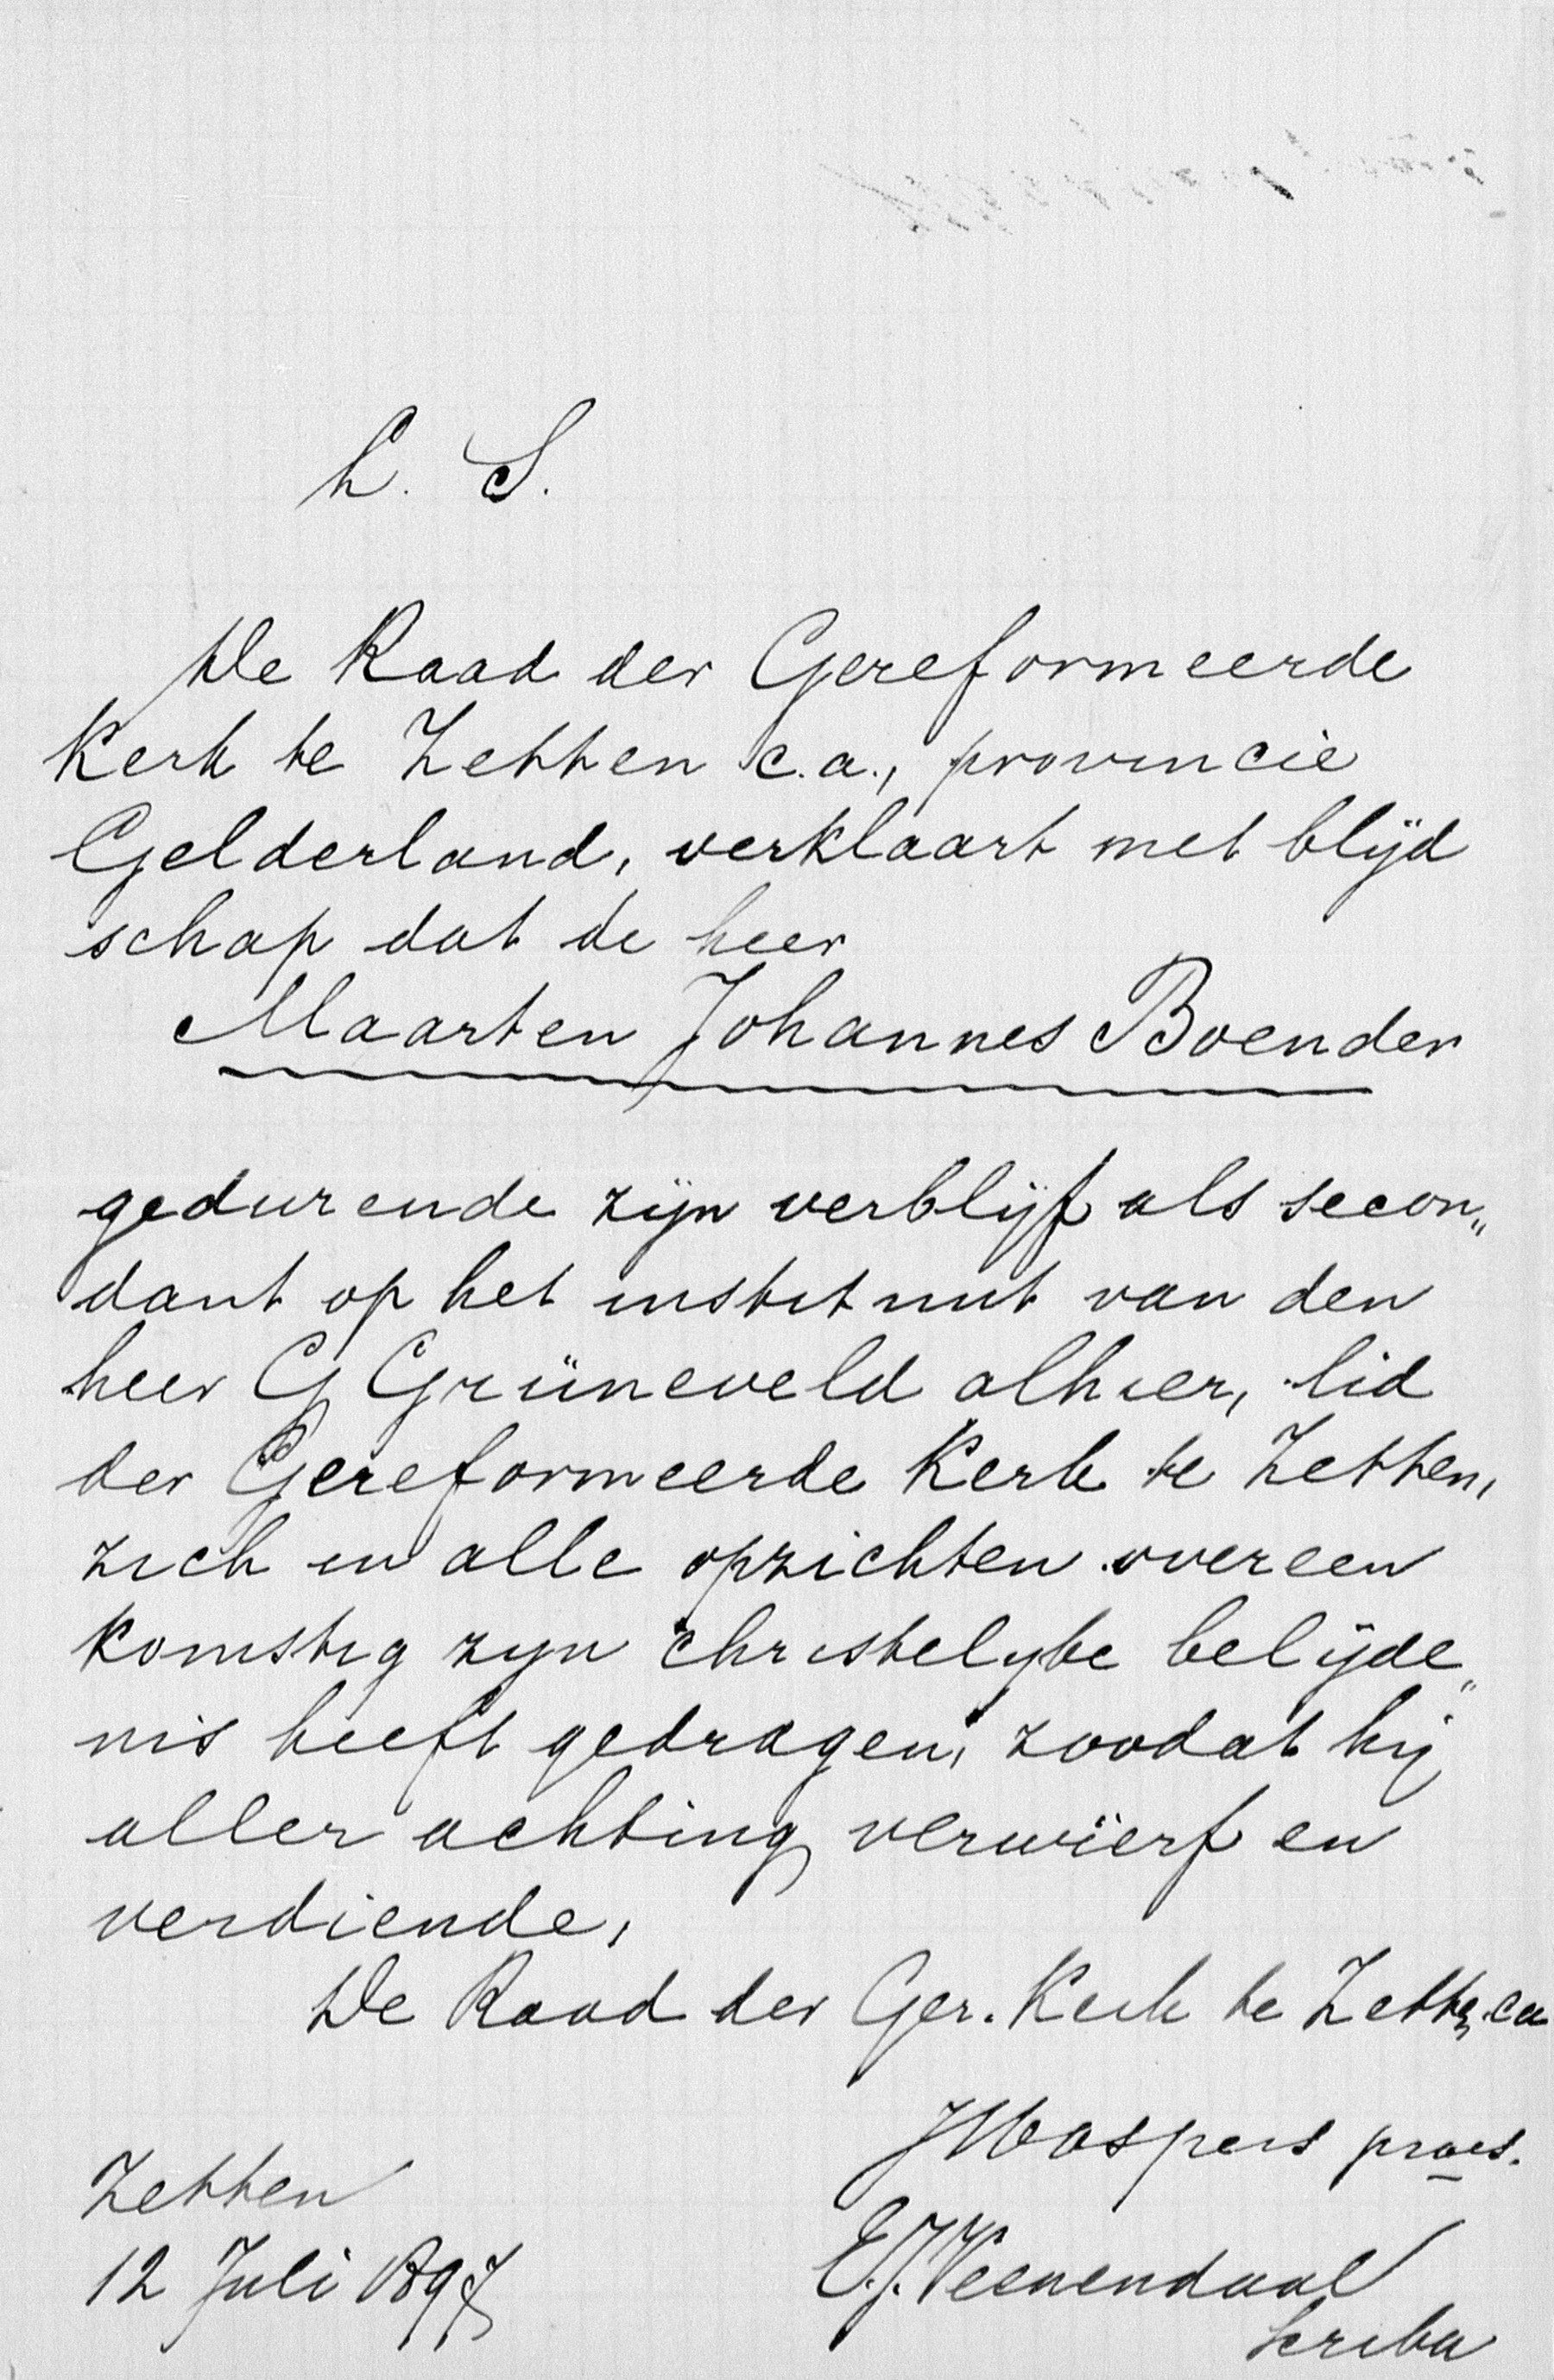 L. S.
De Raad der Gereformeerde
Kerk te Zetten c.a., provincie
Gelderland, verklaart met blijd
schap dat de heer
Maarten Johannes Boender
gedurende zijn verblijf als secon„
dant op het instituut van den
heer G Grüneveld alhier, lid
der Gereformeerde Kerk te Zetten,
zich in alle opzichten overeen
komstig zyn christelyke belijde„
nis heeft gedragen, zoodat hij
aller achting verwierf en
verdiende.
De Raad der Ger. Kerk te Zetten ca
praes.
Zetten
E.J. Veenendaal
12 Juli 1897
Scriba